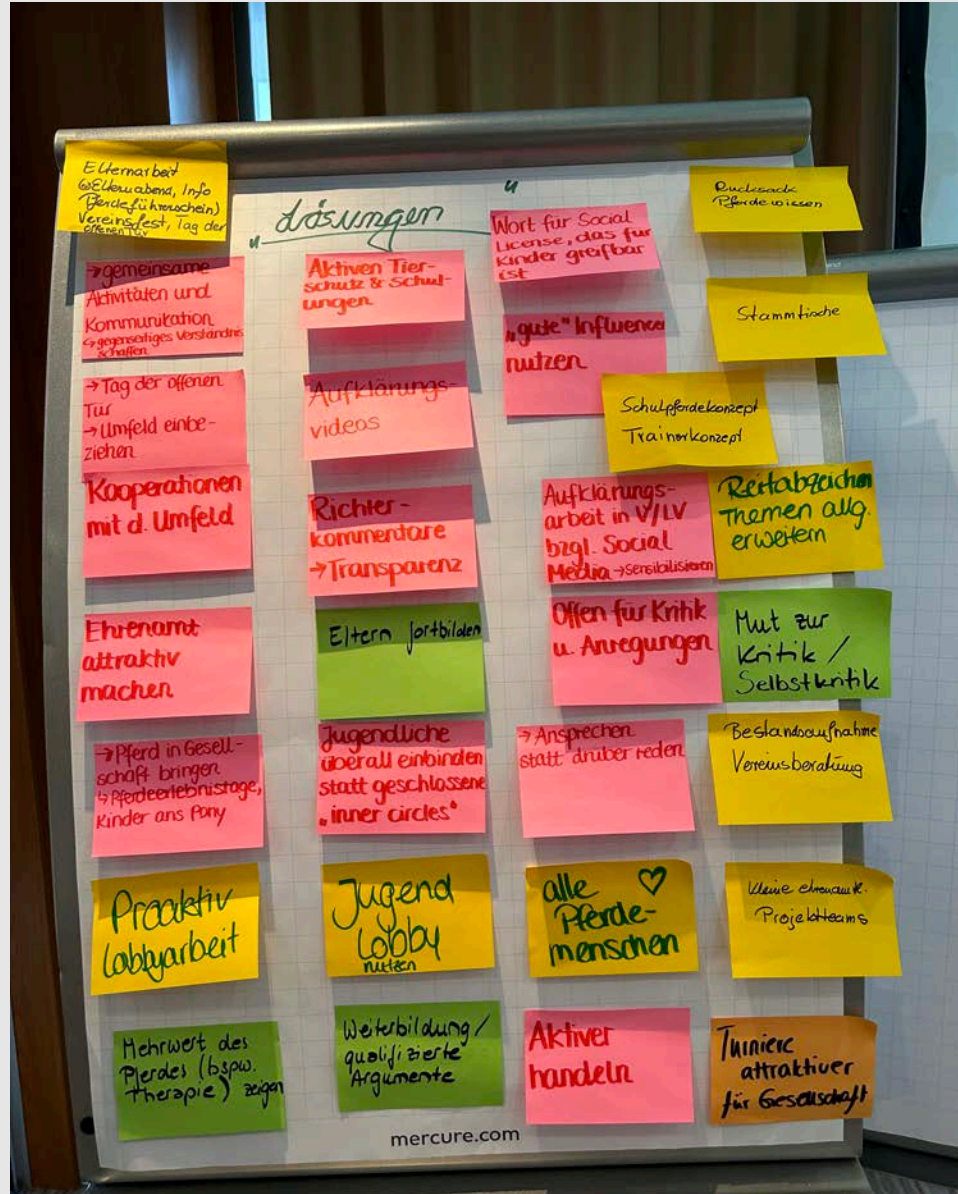 Elternarbeit
(Elternabend, Info
Pferdeführerschein)
Vereinsfest, Tag der
offenen Tür
"Lösungen"
→ gemeinsame
Aktivitäten und
Kommunikation
↳ gegenseitiges Verständnis
schaffen
→ Tag der offenen
Tür
→ Umfeld einbe-
ziehen
Kooperationen
mit d. Umfeld
Ehrenamt
attraktiv
machen
→ Pferd in Gesell-
schaft bringen
↳ Pferdeerlebnistage,
Kinder ans Pony
Proaktiv
Lobbyarbeit
Mehrwert des
Pferdes (bspw.
Therapie) zeigen
Aktiven Tier-
schutz & Schul-
ungen
Aufklärungs-
videos
Richter-
kommentare
→ Transparenz
Eltern fortbilden
Jugendliche
überall einbinden
statt geschlossene
"inner circles"
Jugend
Lobby
nutzen
Weiterbildung/
qualifizierte
Argumente
Wort für Social
License, das für
Kinder greifbar
ist
"gute" Influencer
nutzen
Schulpferdekonzept
Trainerkonzept
Aufklärungs-
arbeit in V/LV
bzgl. Social
Media → sensibilisieren
Offen für Kritik
u. Anregungen
→ Ansprechen
statt drüber reden
alle ♡
Pferde-
menschen
Aktiver
handeln
Rucksack
Pferdewissen
Stammtische
Reitabzeichen
Themen allg.
erweitern
Mut zur
Kritik /
Selbstkritik
Bestandsaufnahme
Vereinsberatung
kleine ehrenamtl.
Projektteams
Turniere
attraktiver
für Gesellschaft
mercure.com